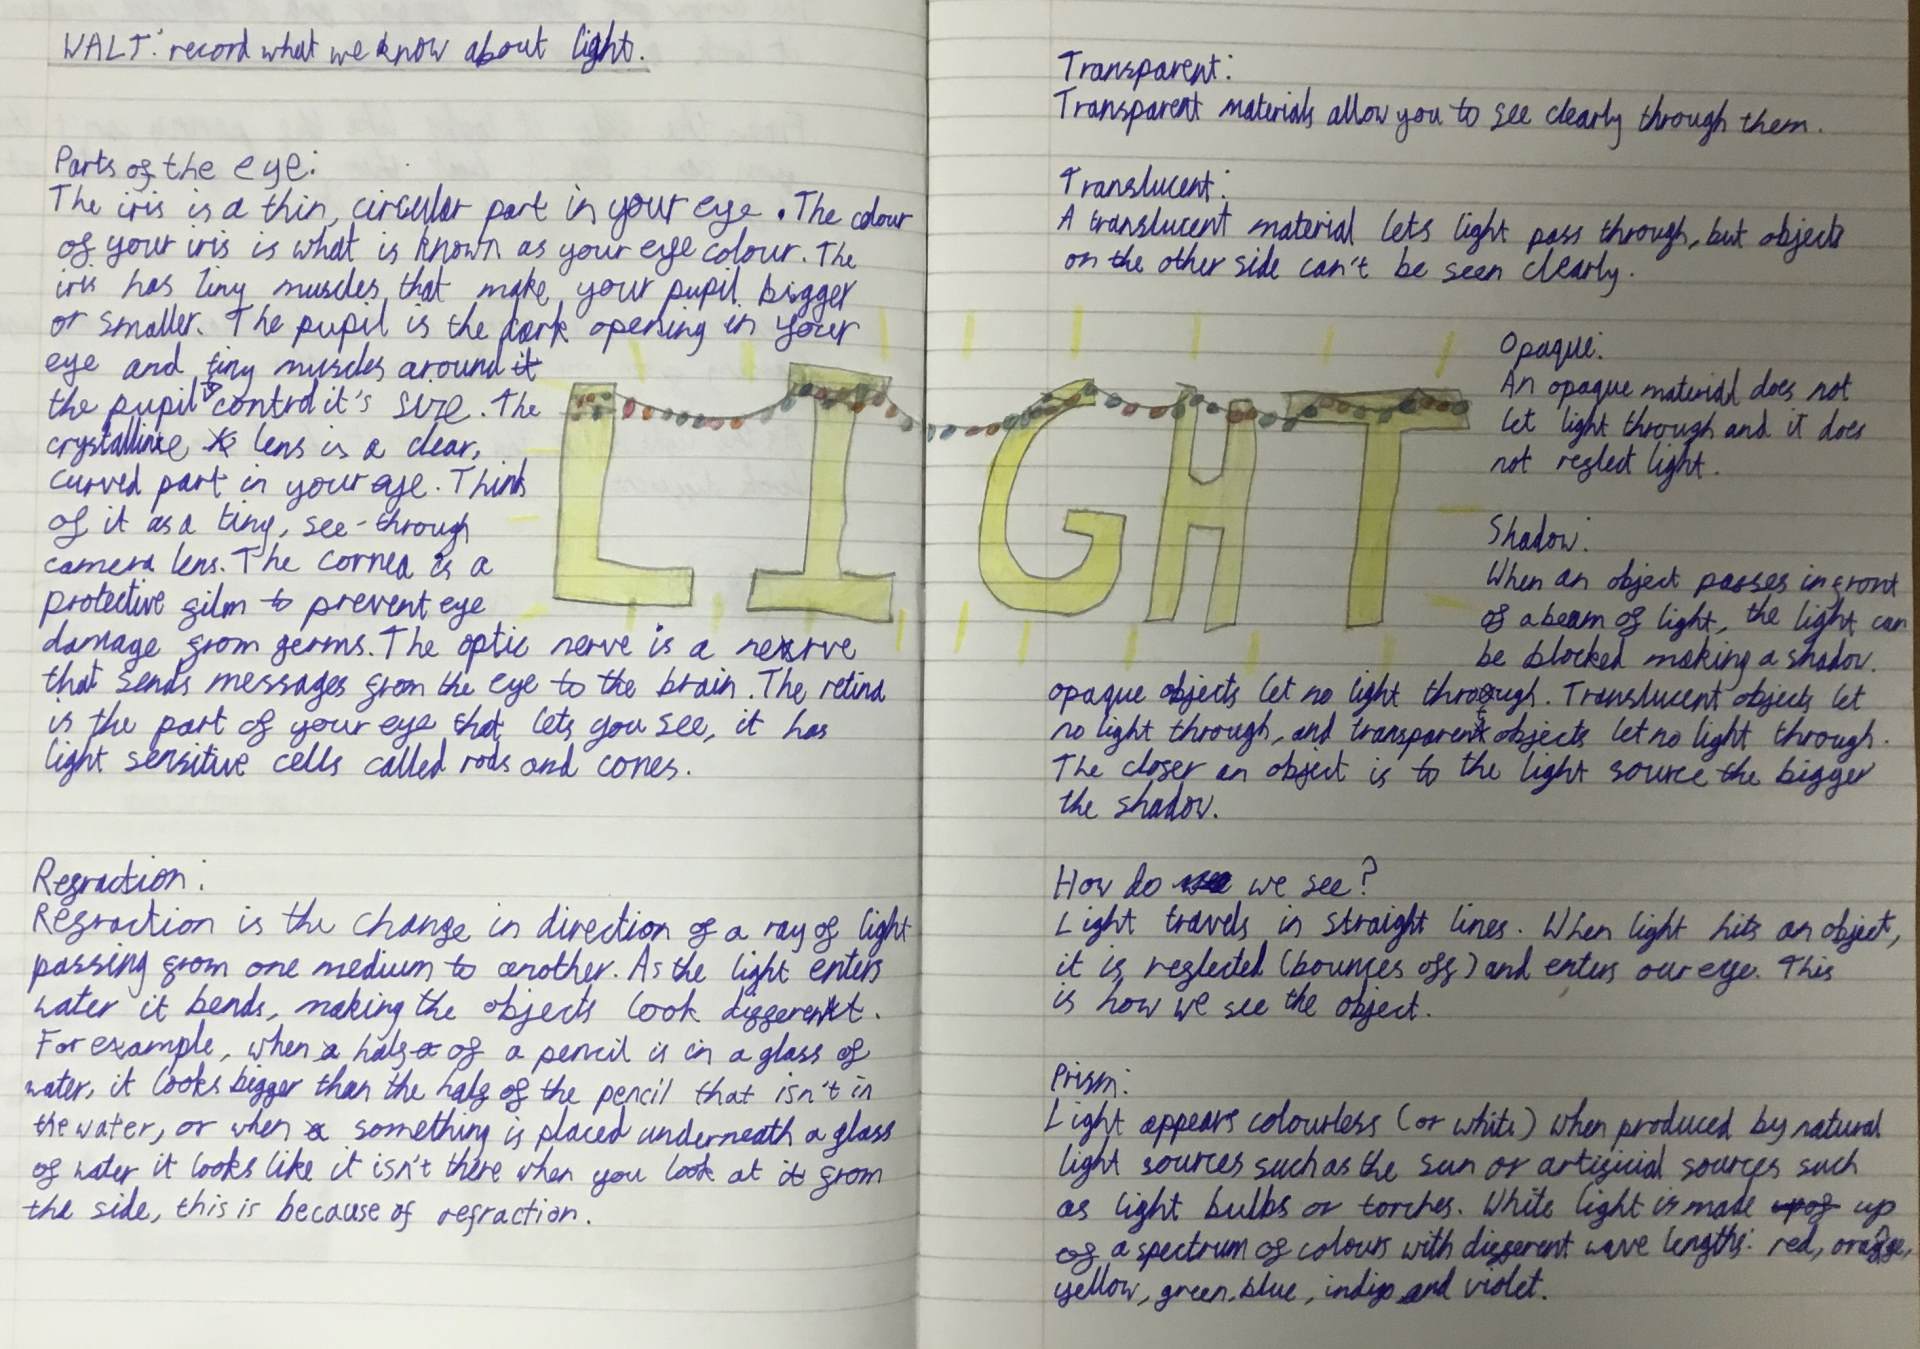 WALT: record what we know about light.
Parts of the eye:
The iris is a thin, circular part in your eye. The colour
of your iris is what is known as your eye colour. The
iris has tiny muscles that make your pupil bigger
or smaller. The pupil is the dark opening in your
eye and tiny muscles around it
the pupil control it's size. The
crystalline lens is a clear,
curved part in your eye. Think
of it as a tiny, see-through
camera lens. The cornea is a
protective film to prevent eye
damage from germs. The optic nerve is a nerve
that sends messages from the eye to the brain. The retina
is the part of your eye that lets you see, it has
light sensitive cells called rods and cones.
Refraction:
Refraction is the change in direction of a ray of light
passing from one medium to another. As the light enters
water it bends, making the objects look different.
For example, when a half a of a pencil is in a glass of
water, it looks bigger than the half of the pencil that isn't in
the water, or when a something is placed underneath a glass
of water it looks like it isn't there when you look at it from
the side, this is because of refraction.
LIGHT
Transparent:
Transparent materials allow you to see clearly through them.
Translucent:
A translucent material lets light pass through, but objects
on the other side can't be seen clearly.
Opaque:
An opaque material does not
let light through and it does
not reflect light.
Shadow:
When an object passes in front
of a beam of light, the light can
be blocked making a shadow.
opaque objects let no light through. Translucent objects let
no light through, and transparent objects let no light through.
The closer an object is to the light source the bigger
the shadow.
How do we see?
Light travels in straight lines. When light hits an object,
it is reflected (bounces off) and enters our eye. This
is how we see the object.
Prism:
Light appears colourless (or white) when produced by natural
light sources such as the sun or artificial sources such
as light bulbs or torches. White light is made up of up
of a spectrum of colours with different wave lengths: red, orange,
yellow, green, blue, indigo and violet.